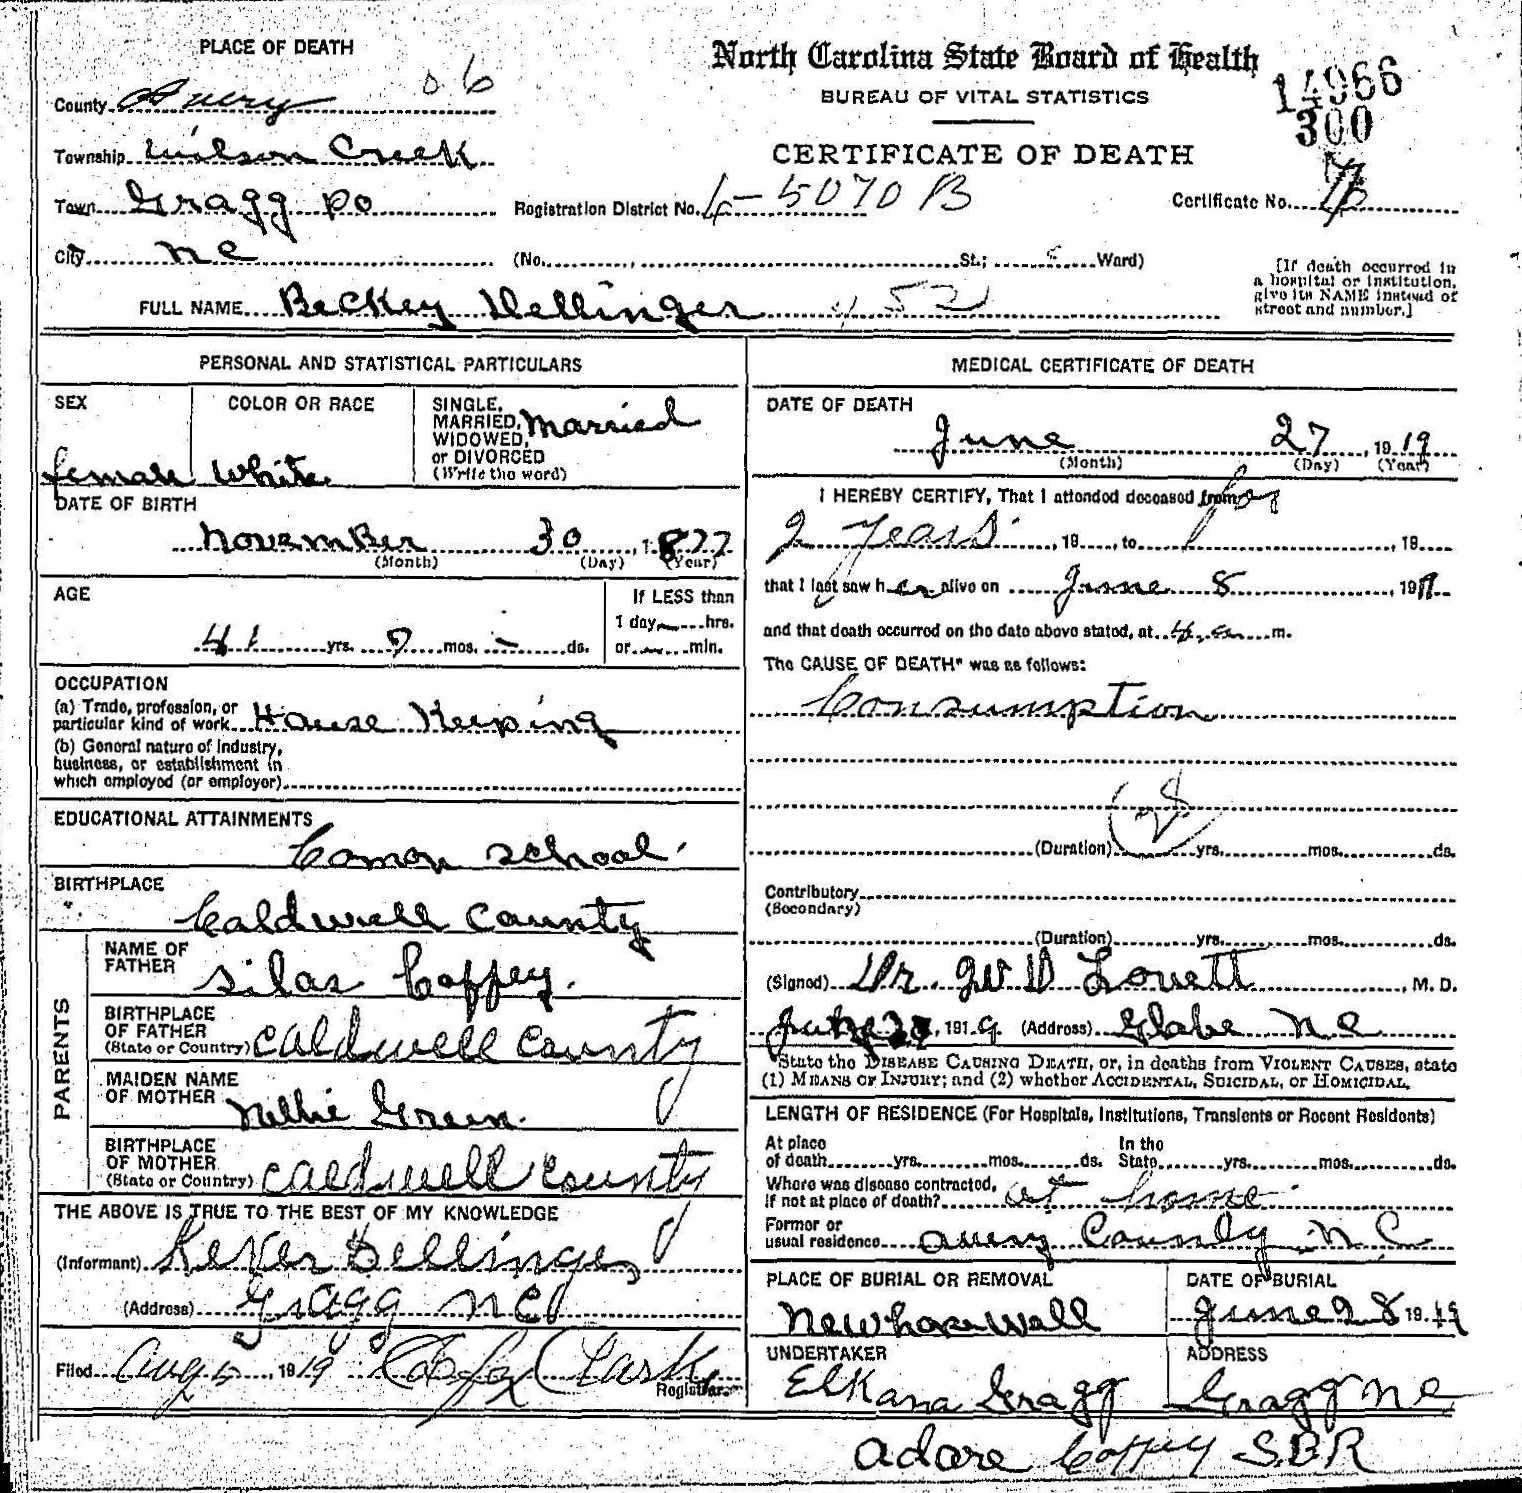 PLACE OF DEATH
North Carolina State Board of Health
BUREAU OF VITAL STATISTICS
CERTIFICATE OF DEATH
14966
300
County Avery 06
Township Wilson Creek
Town Gragg PO
Registration District No. 5070 B
Certificate No.
City N C (No. St.; Ward)
[If death occurred in
a hospital or institution,
give its NAME instead of
street and number.]
FULL NAME Beckey Dellinger 52
PERSONAL AND STATISTICAL PARTICULARS
SEX
female
COLOR OR RACE
White
SINGLE,
MARRIED,
WIDOWED,
or DIVORCED
(Write the word)
Married
DATE OF BIRTH
November 30, 1877
(Month) (Day) (Year)
AGE
41 yrs. mos. - ds.
If LESS than
1 day, hrs.
or min.
OCCUPATION
(a) Trade, profession, or
particular kind of work House Keeping
(b) General nature of industry,
business, or establishment in
which employed (or employer)
EDUCATIONAL ATTAINMENTS
Comon School
BIRTHPLACE
Caldwell County
PARENTS
NAME OF
FATHER
Silas Coffey.
BIRTHPLACE
OF FATHER
(State or Country) Caldwell County
MAIDEN NAME
OF MOTHER
Nellie Green.
BIRTHPLACE
OF MOTHER
(State or Country) Caldwell County
THE ABOVE IS TRUE TO THE BEST OF MY KNOWLEDGE
(Informant) Dellinger
(Address) Gragg NC
Filed Aug 5, 1919 Clark
Registrar
MEDICAL CERTIFICATE OF DEATH
DATE OF DEATH
June 27, 1919
(Month) (Day) (Year)
I HEREBY CERTIFY, That I attended deceased from for
2 Years, 19 , to , 19
that I last saw her alive on June 8, 191
and that death occurred on the date above stated, at 4 a m.
The CAUSE OF DEATH* was as follows:
Consumption
(Duration) yrs. mos. ds.
Contributory
(Secondary)
(Duration) yrs. mos. ds.
(Signed) Dr. Lovett, M. D.
, 1919 (Address) Globe N C
State the DISEASE CAUSING DEATH, or, in deaths from VIOLENT CAUSES, state
(1) MEANS OF INJURY; and (2) whether ACCIDENTAL, SUICIDAL, or HOMICIDAL.
LENGTH OF RESIDENCE (For Hospitals, Institutions, Transients or Recent Residents)
At place
of death yrs. mos. ds.
In the
State yrs. mos. ds.
Where was disease contracted,
if not at place of death? at home
Former or
usual residence Avery County N.C
PLACE OF BURIAL OR REMOVAL
DATE OF BURIAL
June 28 1919
UNDERTAKER
Elkana Gragg
ADDRESS
Gragg N C
Adare Coffey S.B.R